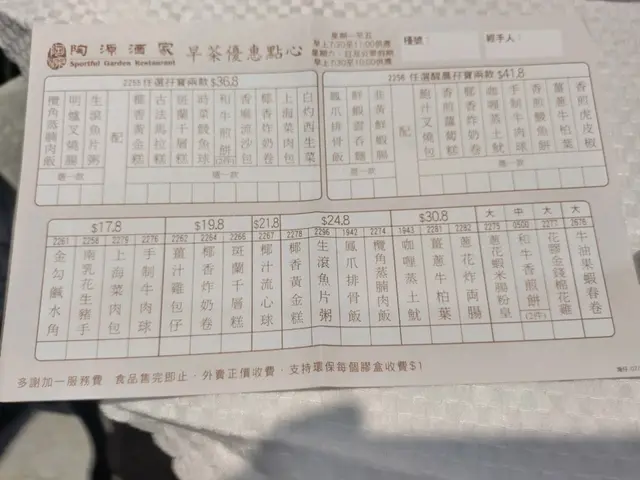 陶源酒家
Sportful Garden Restaurant
早茶優惠點心
星期一至五
早上7:30至11:00供應
星期六、日及公眾假期
早上7:30至10:00供應
檯號：
經手人：
2255 任選孖寶兩款 $36.8
欖角蒸腩肉飯
明爐叉燒腸
生滾魚片粥
配
椰香黃金糕
古法馬拉糕
斑蘭千層糕
時菜鯪魚球
和牛煎餅
香喉流沙包
椰香炸奶卷
上海菜肉包
白灼西生菜
選一款
選一款
2256 任選醒晨孖寶兩款 $41.8
鳳爪排骨飯
鮮蝦雲吞麵
韭黃鮮蝦腸
配
鮑汁叉燒包
香煎蘿蔔糕
椰香炸奶卷
咖喱蒸土魷
手制牛肉球
香煎鯪魚餅
薑蔥牛柏葉
香煎虎皮椒
選一款
選一款
$17.8
$19.8
$21.8
$24.8
$30.8
大
中
大
大
2261 金勾鹹水角
2258 南乳花生豬手
2279 上海菜肉包
2276 手制牛肉球
2262 薑汁雞包仔
2264 椰香炸奶卷
2266 斑蘭千層糕
2267 椰汁流心球
2278 椰香黃金糕
2296 生滾魚片粥
1942 鳳爪排骨飯
2274 欖角蒸腩肉飯
1943 咖喱蒸土魷
2281 薑蔥牛柏葉
2282 蔥花炸両腸
2275 蔥花蝦米腸粉皇
0500 和牛香煎餅(2件)
2277 花膠金錢棉花雞
2676 牛油果蝦春卷
多謝加一服務費 食品售完即止，外賣正價收費，支持環保每個膠盒收費$1